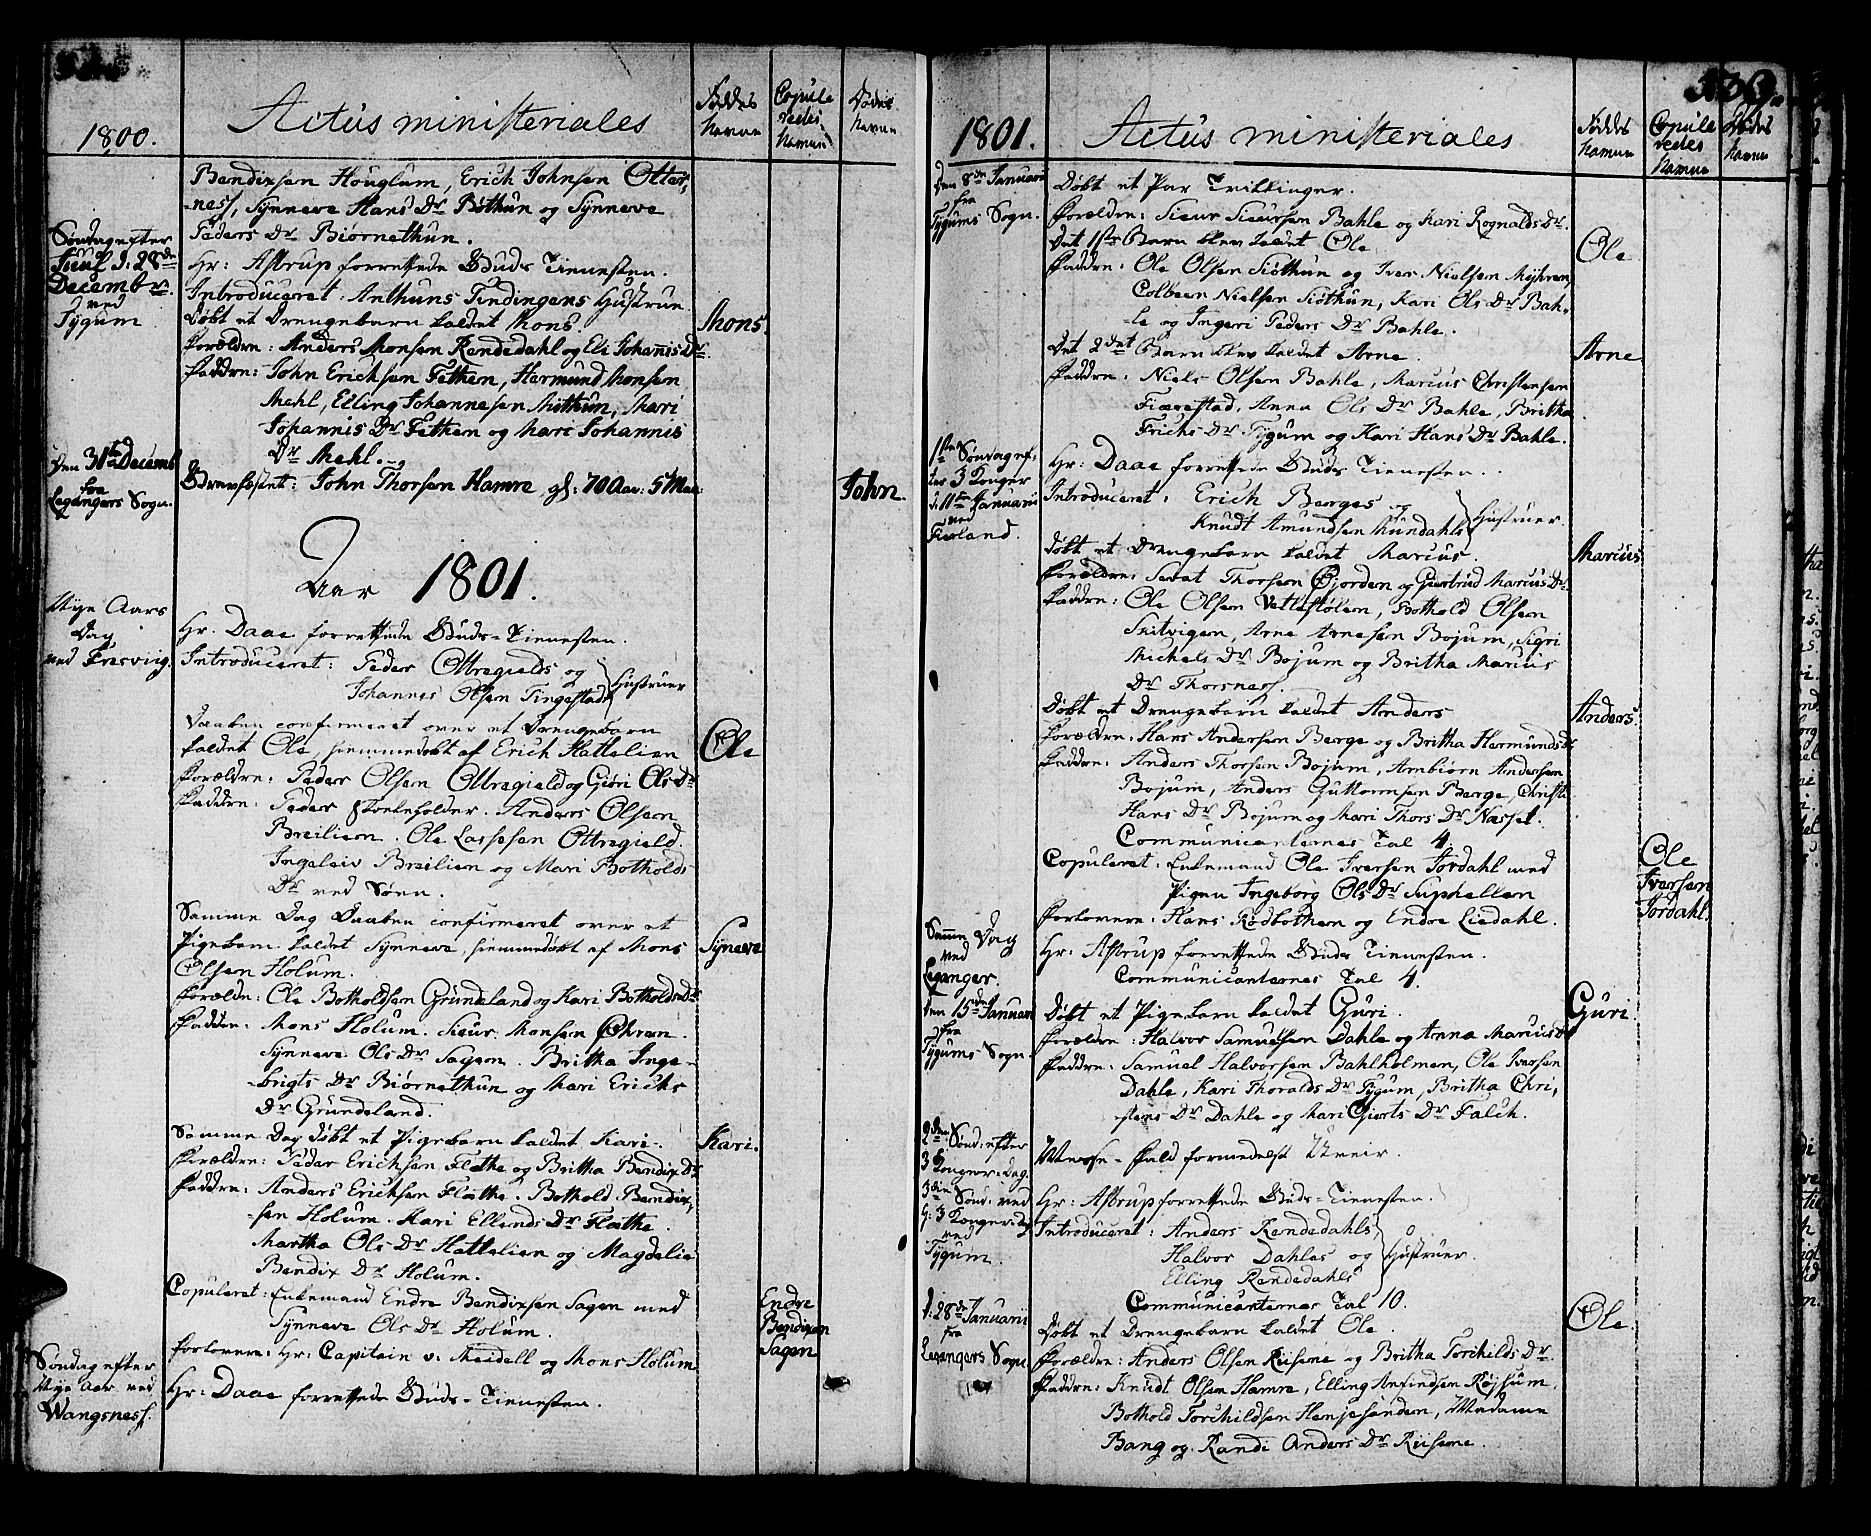 1800.
Actus ministeriales
Føddes Navne
Copule redes Namne
Dødes Navne
Bendixsen Houglum, Erich Johnsen Otter,
-ness, Synneve Hans Dr Bøthun og Synneve
Peders Dr Biørnethun.
Søndag efter
Juul d: 28de
Decembr
ved
Tygum
Hr: Astrup forrettede Guds Tienesten.
Introduceret: Anthuns Tindingens Hustrue
Døbt et Drengebarn kaldet Mons.
Mons.
Forældre: Anders Monsen Rendedahl og Eli Johannis Dr
Faddre: John Erichsen Fethem, Hermund Monsen
Mehl, Elling Johannesen Mithun, Mari
Johannis Dr Fethem og Mari Johannis
Dr Mehl.
Den 31te Decemb
fra
Leganger Sogn.
Brevfæstet: John Thorsen Hamre, gl: 70 Aar: 5 Maa:
John.
Aar 1801.
Nye Aars
Dag
ved Fresviig.
Hr. Daae forrettede Guds-Tienesten.
Introduceret: Peder Ottregields og
Johannes Olsen Tingestads
Hustruer
Daaben confirmeret over et Drengebarn
kaldet Ole, hiemmedøbt af Erich Hattelien
Ole
Forældre: Peder Olsen Ottregield og Giøri Ols Dr
Faddre: Peder Skoleholder. Anders Olsen
Breilien. Ole Lassesen Ottregield.
Ingeleiv Breilien og Mari Botholds
Dr ved Søen.
Samme Dag Daaben confirmeret over et
Pigebarn kaldet Synneve, hiemmedøbt af Mons
Synneve
Olsen Holum.
Forældre: Ole Botholdsen Grindeland og Kari Botholds Dr
Faddre: Mons Holum. Siur Monsen Øhren.
Synneve Ols Dr Sagen. Britha Inge-
-brigts Dr Biørnethun og Mari Erichs
Dr Grindeland.
Samme Dag Døbt et Pigebarn kaldet Kari.
Kari.
Forældre: Peder Erichsen Flathe og Britha Bendix Dr
Faddre: Anders Erichsen Flathe. Bothold Bendix,
-sen Holum. Kari Ellends Dr Flathe.
Martha Ols Dr Hattelien og Magdelie
Bendix Dr Holum.
Copuleret: Enkemand Endre Bendixsen Sagen med
Synneve Ols Dr Holum.
Endre
Bendixen
Sagen
Forlovere: Hr: Capitain v. Meidell og Mons Holum
Søndag efter
Nye Aar ved
Wangsness.
Hr: Daae forrettede Guds-Tienesten.
1801.
Actus ministeriales
Føddes Namne
Copule redes Namne
Dødes Namne
Den 8de Januarii
fra
Tygums Sogn.
Døbt et Par Tvillinger.
Forældre: Sieur Sieursen Bahle og Kari Rognalds Dr.
Det 1ste Barn blev kaldet Ole
Ole
Faddre: Ole Olsen Siøthun og Iver Nielsen Myhren,
Colbeen Nielsen Siøthun, Kari Ols Dr Bah-
-le og Ingeri Peders Dr Bahle.
Det 2det Barn blev kaldet Arne.
Arne
Faddre: Niels Olsen Bahle, Marcus Christensen
Fiærestad, Anna Ols Dr Bahle, Britha
Frichs Dr Tygum og Kari Hans Dr Bahle.
1ste Søndag ef-
ter 3 Konger
d: 11te Januarii
ved
Fierland.
Hr: Daae forrettede Guds Tienesten.
Introduceret: Erich Berges og
Knudt Amundsen Mundahls
Hustruer.
Døbt et Drengebarn kaldet Marcus.
Marcus
Forældre: Sevat Thorsen Øjorden og Giertrud Marcus Dr
Faddre: Ole Olsen Vetlestølen, Bothold Olsen
Skitvigen, Arne Arnesen Bojum, Sigri
Michels Dr Bojum og Britha Marcus
Dr Thorsness.
Døbt et Drengebarn kaldet Anders
Anders.
Forældre: Hans Andersen Berge og Britha Hermunds Dr
Faddre: Anders Thorsen Bojum, Arnbiørn Andersen
Bojum, Anders Guttormsen Berge, Christi
Hans Dr Bojum og Mari Thors Dr Næsset.
Communicanternes Tal 4.
Copuleret: Enkemand Ole Iversen Jordahl med
Pigen Ingeborg Ols Dr Suphellen
Ole
Iversen
Jordahl.
Forlovere: Hans Rødbotten og Endre Liedahl.
Samme Dag
ved
Leganger.
Hr: Astrup forrettede Guds Tienesten.
Communicanternes Tal 4.
Den 15de Januari
fra
Tygums Sogn.
Døbt et Pigebarn kaldet Guri.
Guri.
Forældre: Halvor Samuelsen Dahle og Anna Marcus Dr
Faddre: Samuel Halvorsen Bahlholmen, Ole Iversen
Dahle, Kari Thoralds Dr Tygum, Britha Chri,
-stens Dr Dahle og Mari Gierts Dr Falch.
2den Sønd: efter
3 Konger-Dag.
Messe-Fald formedelst Uveir.
3die Sønd: ved
H: 3 Kongersdag
ved
Tygum.
Hr: Astrup forrettede Guds-Tienesten.
Introduceret: Anders Rendedahls
Halvor Dahles og
Elling Rendedahls
Hustruer.
Communicanternes Tal 10.
d: 28de Januarii
fra
Legangers Sogn
Døbt et Drengebarn kaldet Ole.
Ole.
Forældre: Anders Olsen Riiseme og Britha Torchilds Dr
Faddre: Knudt Olsen Hamre, Elling Anfindsen Røjsum.
Bothold Torchildsen Henjesanden, Madame
Bang og Randi Anders Dr Riiseme.